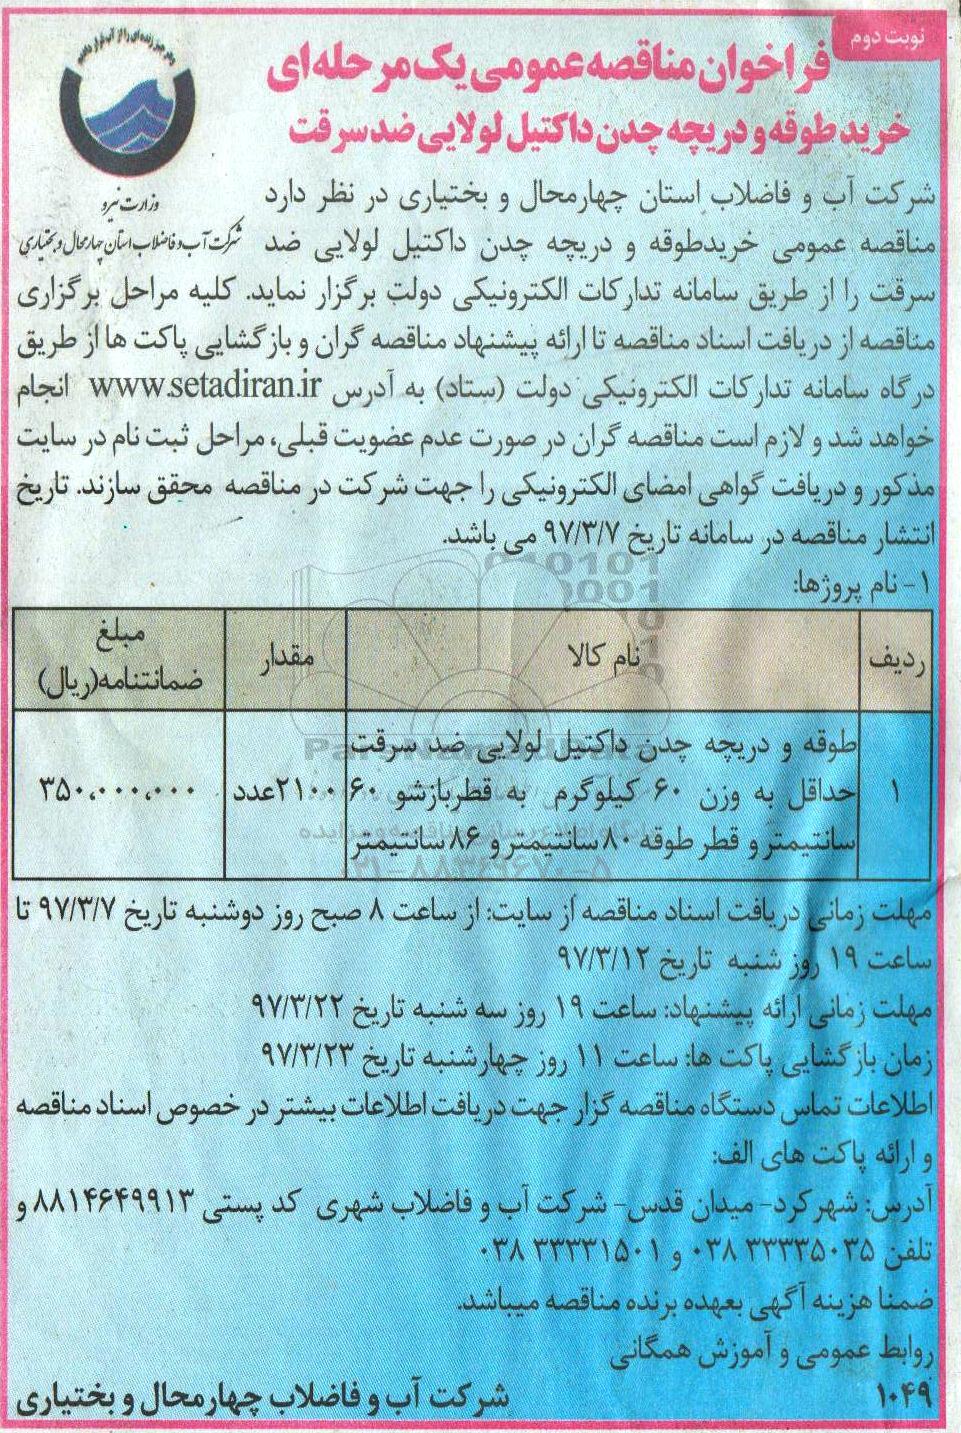 نوبت دوم
فراخوان مناقصه عمومی یک مرحله‌ای
خرید طوقه و دریچه چدن داکتیل لولایی ضد سرقت
وزارت نیرو
شرکت آب و فاضلاب استان چهارمحال و بختیاری
شرکت آب و فاضلاب استان چهارمحال و بختیاری در نظر دارد
مناقصه عمومی خریدطوقه و دریچه چدن داکتیل لولایی ضد
سرقت را از طریق سامانه تدارکات الکترونیکی دولت برگزار نماید. کلیه مراحل برگزاری
مناقصه از دریافت اسناد مناقصه تا ارائه پیشنهاد مناقصه گران و بازگشایی پاکت ها از طریق
درگاه سامانه تدارکات الکترونیکی دولت (ستاد) به آدرس www.setadiran.ir انجام
خواهد شد و لازم است مناقصه گران در صورت عدم عضویت قبلی، مراحل ثبت نام در سایت
مذکور و دریافت گواهی امضای الکترونیکی را جهت شرکت در مناقصه محقق سازند. تاریخ
انتشار مناقصه در سامانه تاریخ ۹۷/۳/۷ می باشد.
۱- نام پروژها:
ردیف نام کالا مقدار مبلغ
ضمانتنامه(ریال)
طوقه و دریچه چدن داکتیل لولایی ضد سرقت
۱ حداقل به وزن ۶۰ کیلوگرم به قطربازشو ۶۰ ۲۱۰۰عدد ۳۵۰,۰۰۰,۰۰۰
سانتیمتر و قطر طوقه ۸۰ سانتیمتر و ۸۶ سانتیمتر
ParsNamadData
۰۲۱-۸۸۳۴۹۶۷۰-۵
مهلت زمانی دریافت اسناد مناقصه از سایت: از ساعت ۸ صبح روز دوشنبه تاریخ ۹۷/۳/۷ تا
ساعت ۱۹ روز شنبه تاریخ ۹۷/۳/۱۲
مهلت زمانی ارائه پیشنهاد: ساعت ۱۹ روز سه شنبه تاریخ ۹۷/۳/۲۲
زمان بازگشایی پاکت ها: ساعت ۱۱ روز چهارشنبه تاریخ ۹۷/۳/۲۳
اطلاعات تماس دستگاه مناقصه گزار جهت دریافت اطلاعات بیشتر در خصوص اسناد مناقصه
و ارائه پاکت های الف:
آدرس: شهرکرد- میدان قدس- شرکت آب و فاضلاب شهری کد پستی ۸۸۱۴۶۴۹۹۱۳ و
تلفن ۰۳۸ ۳۳۳۳۵۰۳۵ و ۰۳۸ ۳۳۳۳۱۵۰۱
ضمنا هزینه آگهی بعهده برنده مناقصه میباشد.
روابط عمومی و آموزش همگانی
۱۰۴۹ شرکت آب و فاضلاب چهارمحال و بختیاری